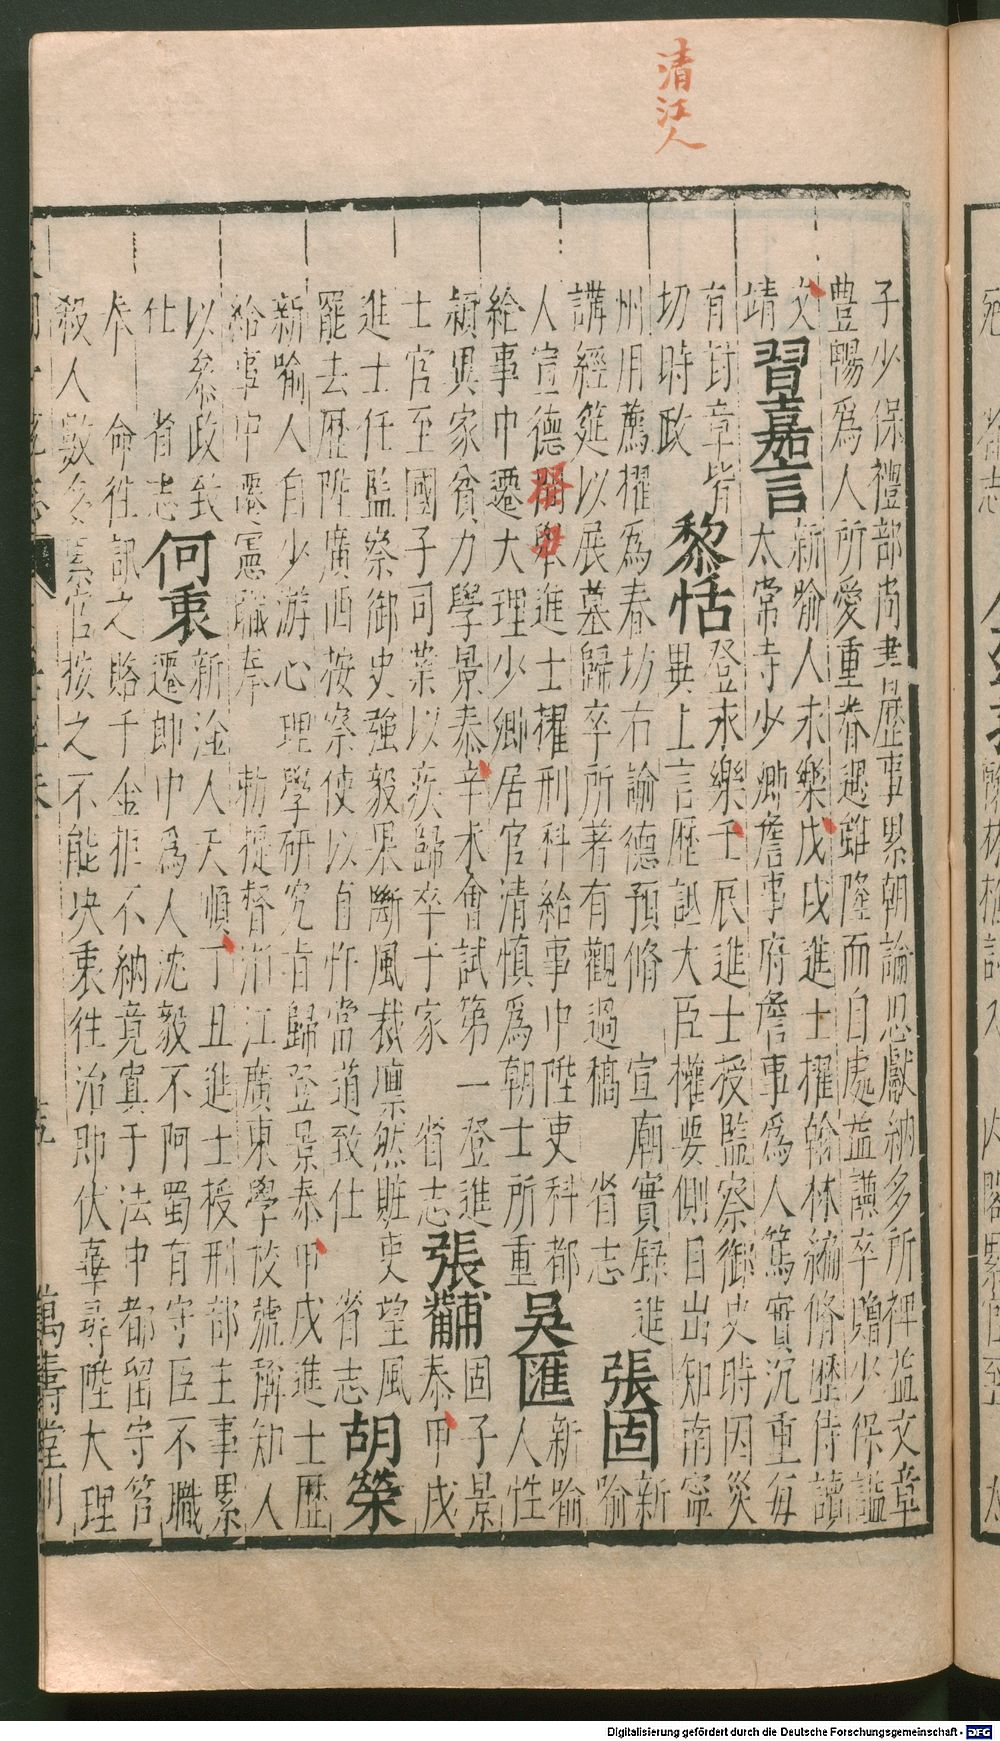 清江人
子少保禮部尚書歷事累朝論思獻納多所裨益文章
豊暢爲人所愛重眷遇雖隆而自處益謙卒贈少保謚
文
靖
習嘉言
新喻人永樂戊戌進士擢翰林編脩歷侍讀
太常寺少卿詹事府詹事爲人篤實沉重每
有封章皆
切時政
黎恬
登永樂壬辰進士授監察御史時因災
異上言歷詆大臣權要側目出知南寧
州用薦擢爲春坊右諭德預脩 宣廟實錄進
講經筵以展墓歸卒所著有觀過稿 省志
張固
新
喻
人宣德癸丑進士擢刑科給事中陞吏科都
給事中遷大理少卿居官清慎爲朝士所重
吳匯
新喻
人性
穎異家貧力學景泰辛未會試第一登進
士官至國子司業以疾歸卒于家 省志
張黼
固子景
泰甲戌
進士任監察御史強毅果斷風裁凛然賍吏望風
罷去歷陞廣西按察使以自忤當道致仕 省志
胡榮
新喻人自少游心理學研究肯歸登景泰甲戌進士歷
給事中遷憲職奉 勑提督浙江廣東學校號稱知人
以叅政致
仕 省志
何東
新淦人天順丁丑進士授刑部主事累
遷郎中爲人沈毅不阿蜀有守臣不職
奉 命往訊之賂千金拒不納竟寘于法中都留守笞
殺人數多累官按之不能决東往治即伏辜尋陞大理
萬壽堂刊
Digitalisierung gefördert durch die Deutsche Forschungsgemeinschaft - DFG